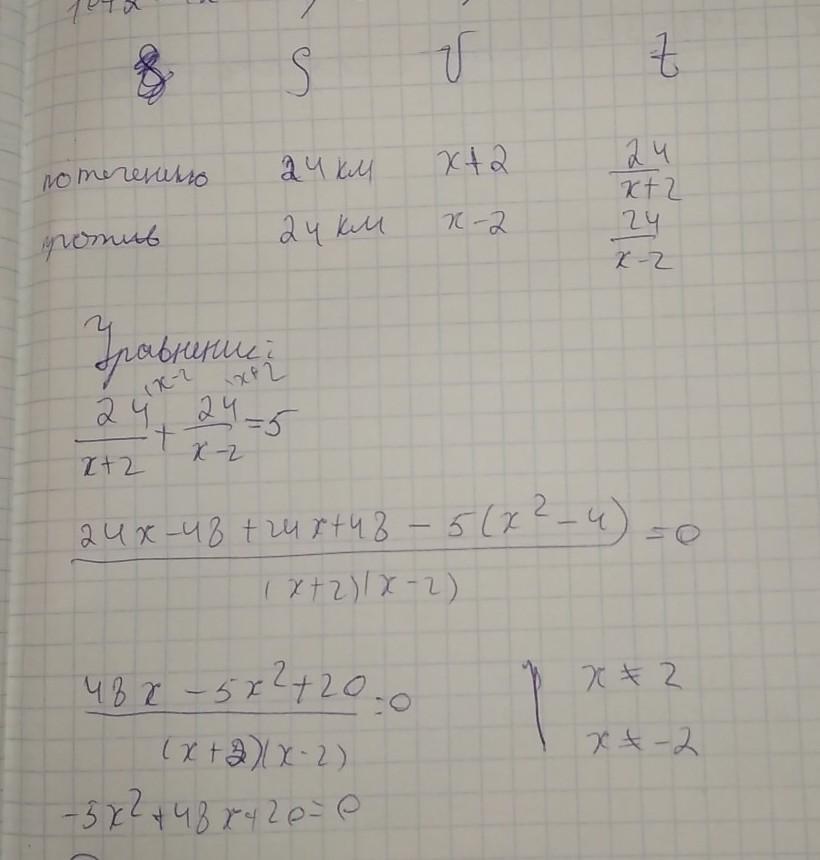 S V t
по течению 24 км x+2 24/(x+2)
против 24 км x-2 24/(x-2)
Уравнение:
24/(x+2) \x-2 + 24/(x-2) \x+2 = 5
(24x-48+24x+48-5(x²-4))/((x+2)(x-2)) = 0
(48x-5x²+20)/((x+2)(x-2)) = 0 | x≠2
x≠-2
-5x²+48x+20=0